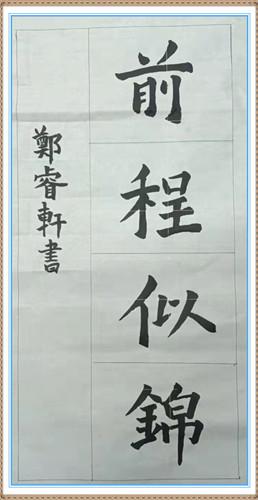 前程似錦
鄭睿軒書